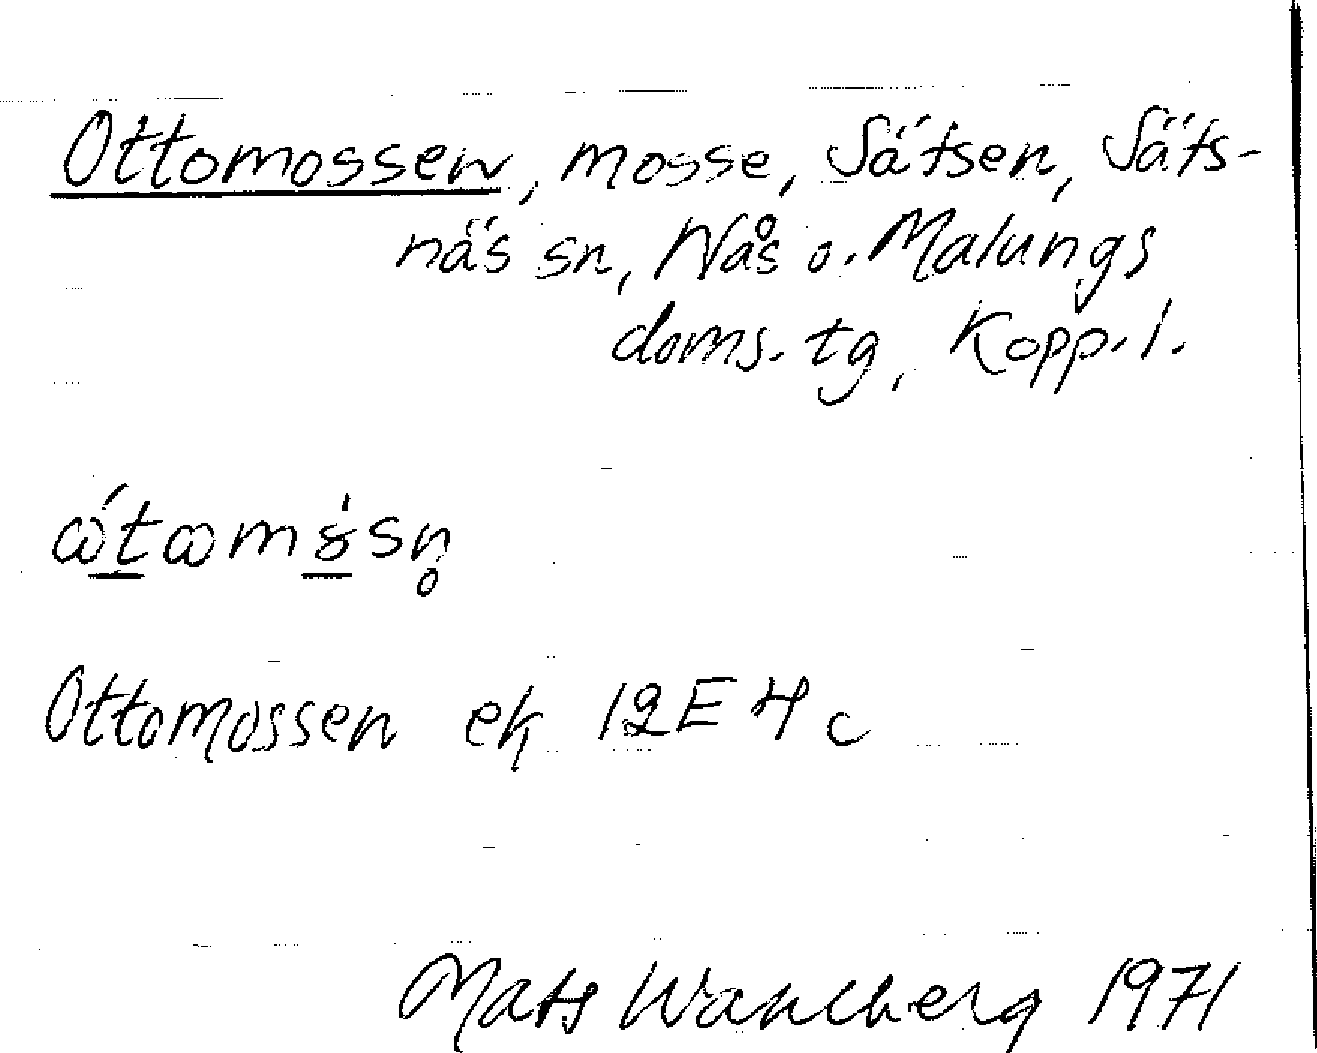 Ottomossen, mosse, Sätsen, Säts-
näs sn, Nås o. Malungs
doms. tg, Kopp. l.
Ottomossen ek 12E 4c
Mats Wahlberg 1971